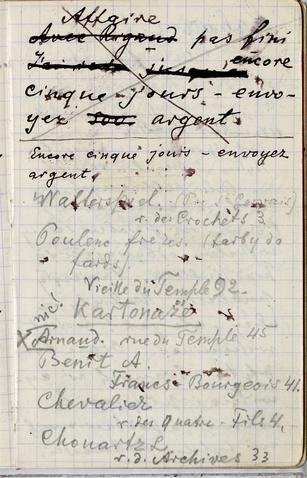 Affaire
Avec Argand pas fini
J'ai reste jusque encore
cinque jours - envo-
yez 500 argent.
Encore cinque jours - envoyez
argent.
Waltersperl. (Pré S. Gervais)
r. des Crochets 3
Poulenc frères. (farby do
fards).
Vieille du Temple 92.
Kartonaże
nic!
X Arnand. rue du Temple 45
Benit A.
Francs-Bourgeois 41.
Chevalier
r. des Quatre-Fils 4,
Chouartz L.
r. d. Archives 33